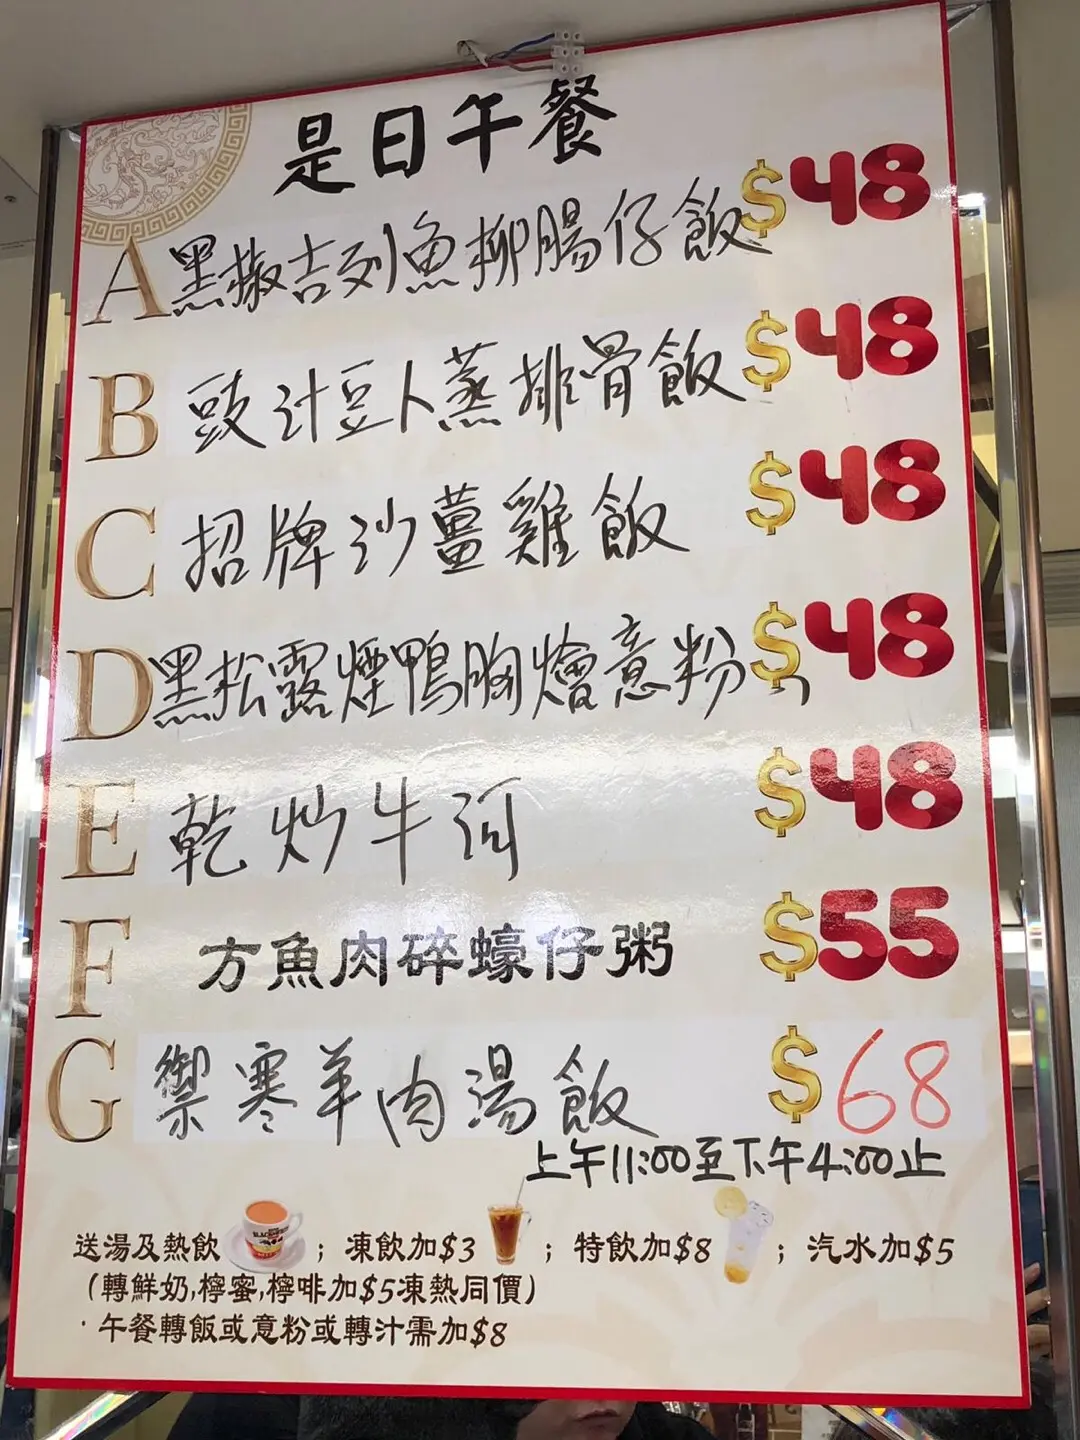 是日午餐
A 黑椒吉列魚柳腸仔飯 $48
B 豉汁豆卜蒸排骨飯 $48
C 招牌沙薑雞飯 $48
D 黑松露煙鴨胸燴意粉 $48
E 乾炒牛河 $48
F 方魚肉碎蠔仔粥 $55
G 禦寒羊肉湯飯 $68
上午11:00至下午4:00止
送湯及熱飲 ; 凍飲加$3 ; 特飲加$8 ; 汽水加$5
(轉鮮奶,檸蜜,檸啡加$5凍熱同價)
·午餐轉飯或意粉或轉汁需加$8